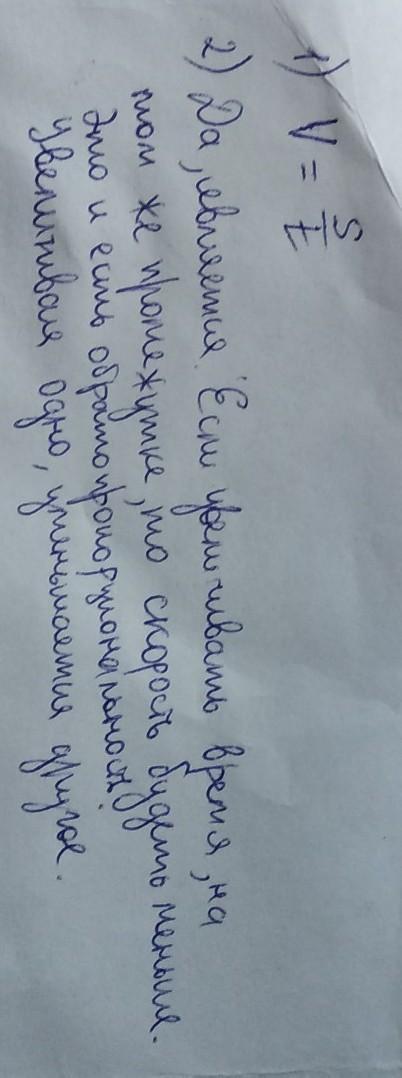 1) V = S/t
2) Да, является. Если увеличивать время, на
том же промежутке, то скорость будеть меньше.
Это и есть обратопропорциональность,
увеличивая одно, уменьшается другое.